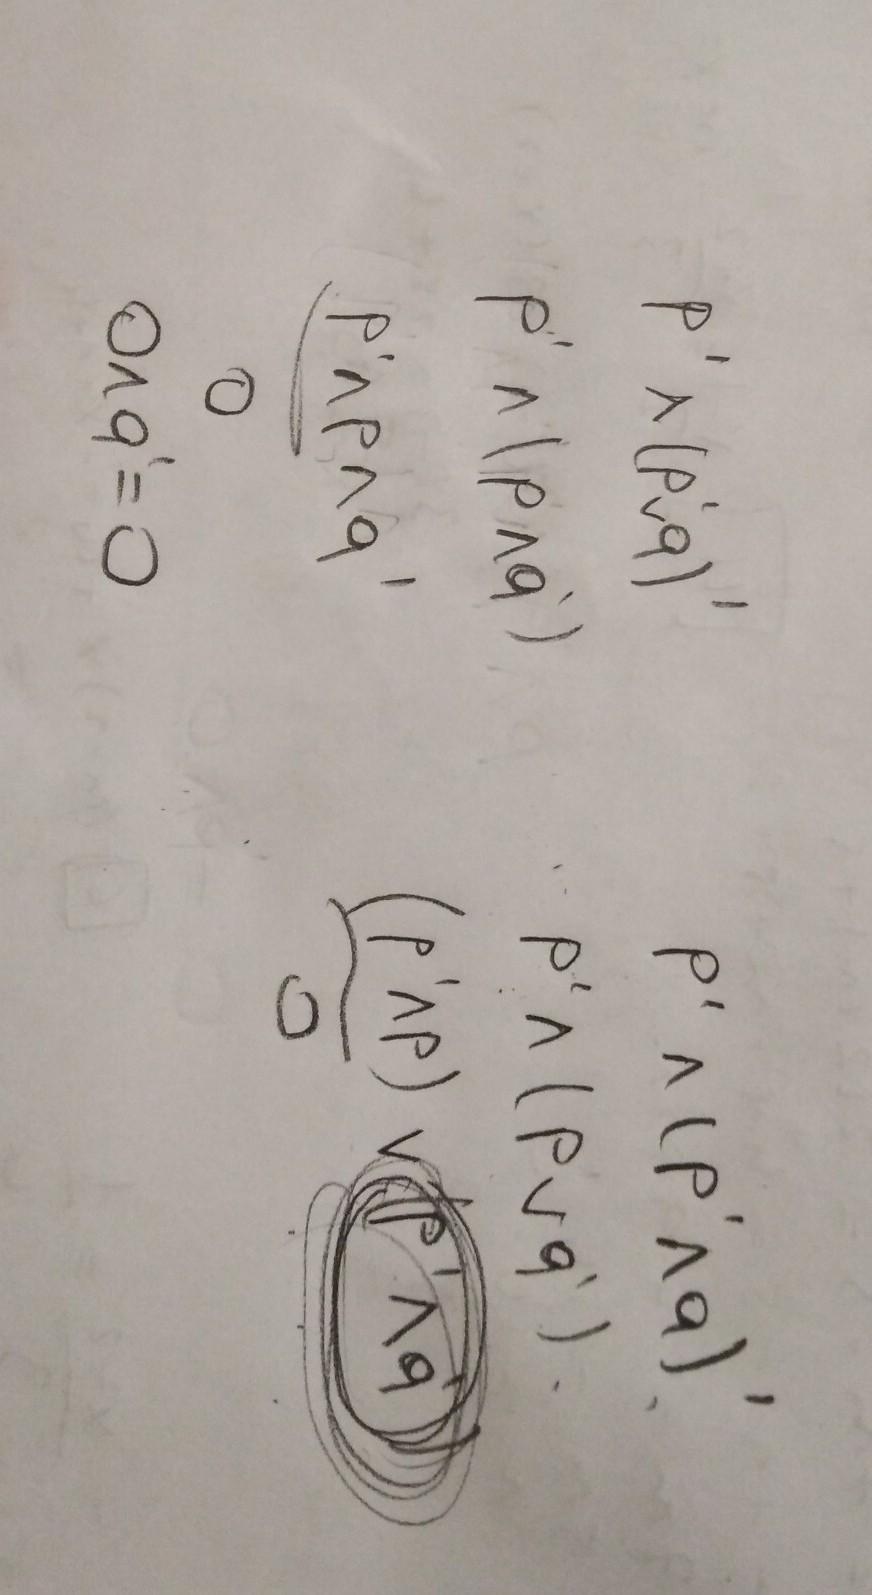 p' ∧ (p' ∨ q)'
p' ∧ (p ∧ q')
p' ∧ p ∧ q'
0
0 ∧ q' = 0
p' ∧ (p' ∧ q)'
p' ∧ (p ∨ q')
(p' ∧ p) ∨ (p' ∧ q'
0